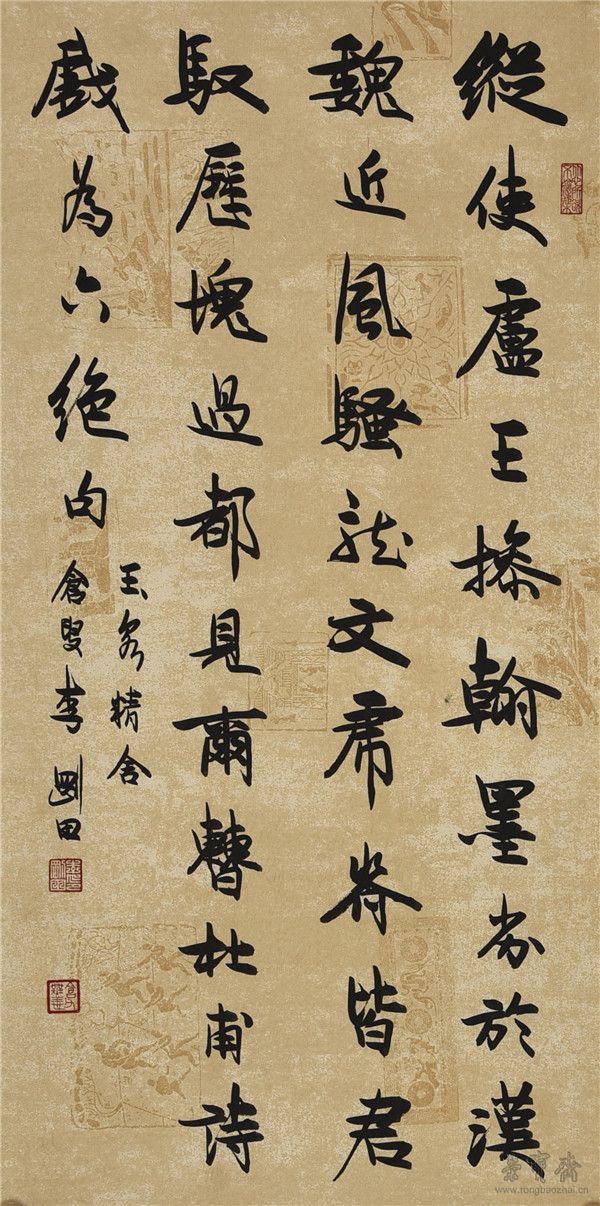 縱使盧王操翰墨劣於漢
魏近風騷龍文虎脊皆君
馭歷塊過都見爾曹杜甫詩
戲為六絕句
玉精舍
倉叟李剛田
榮寶齋
www.rongbaozhai.cn